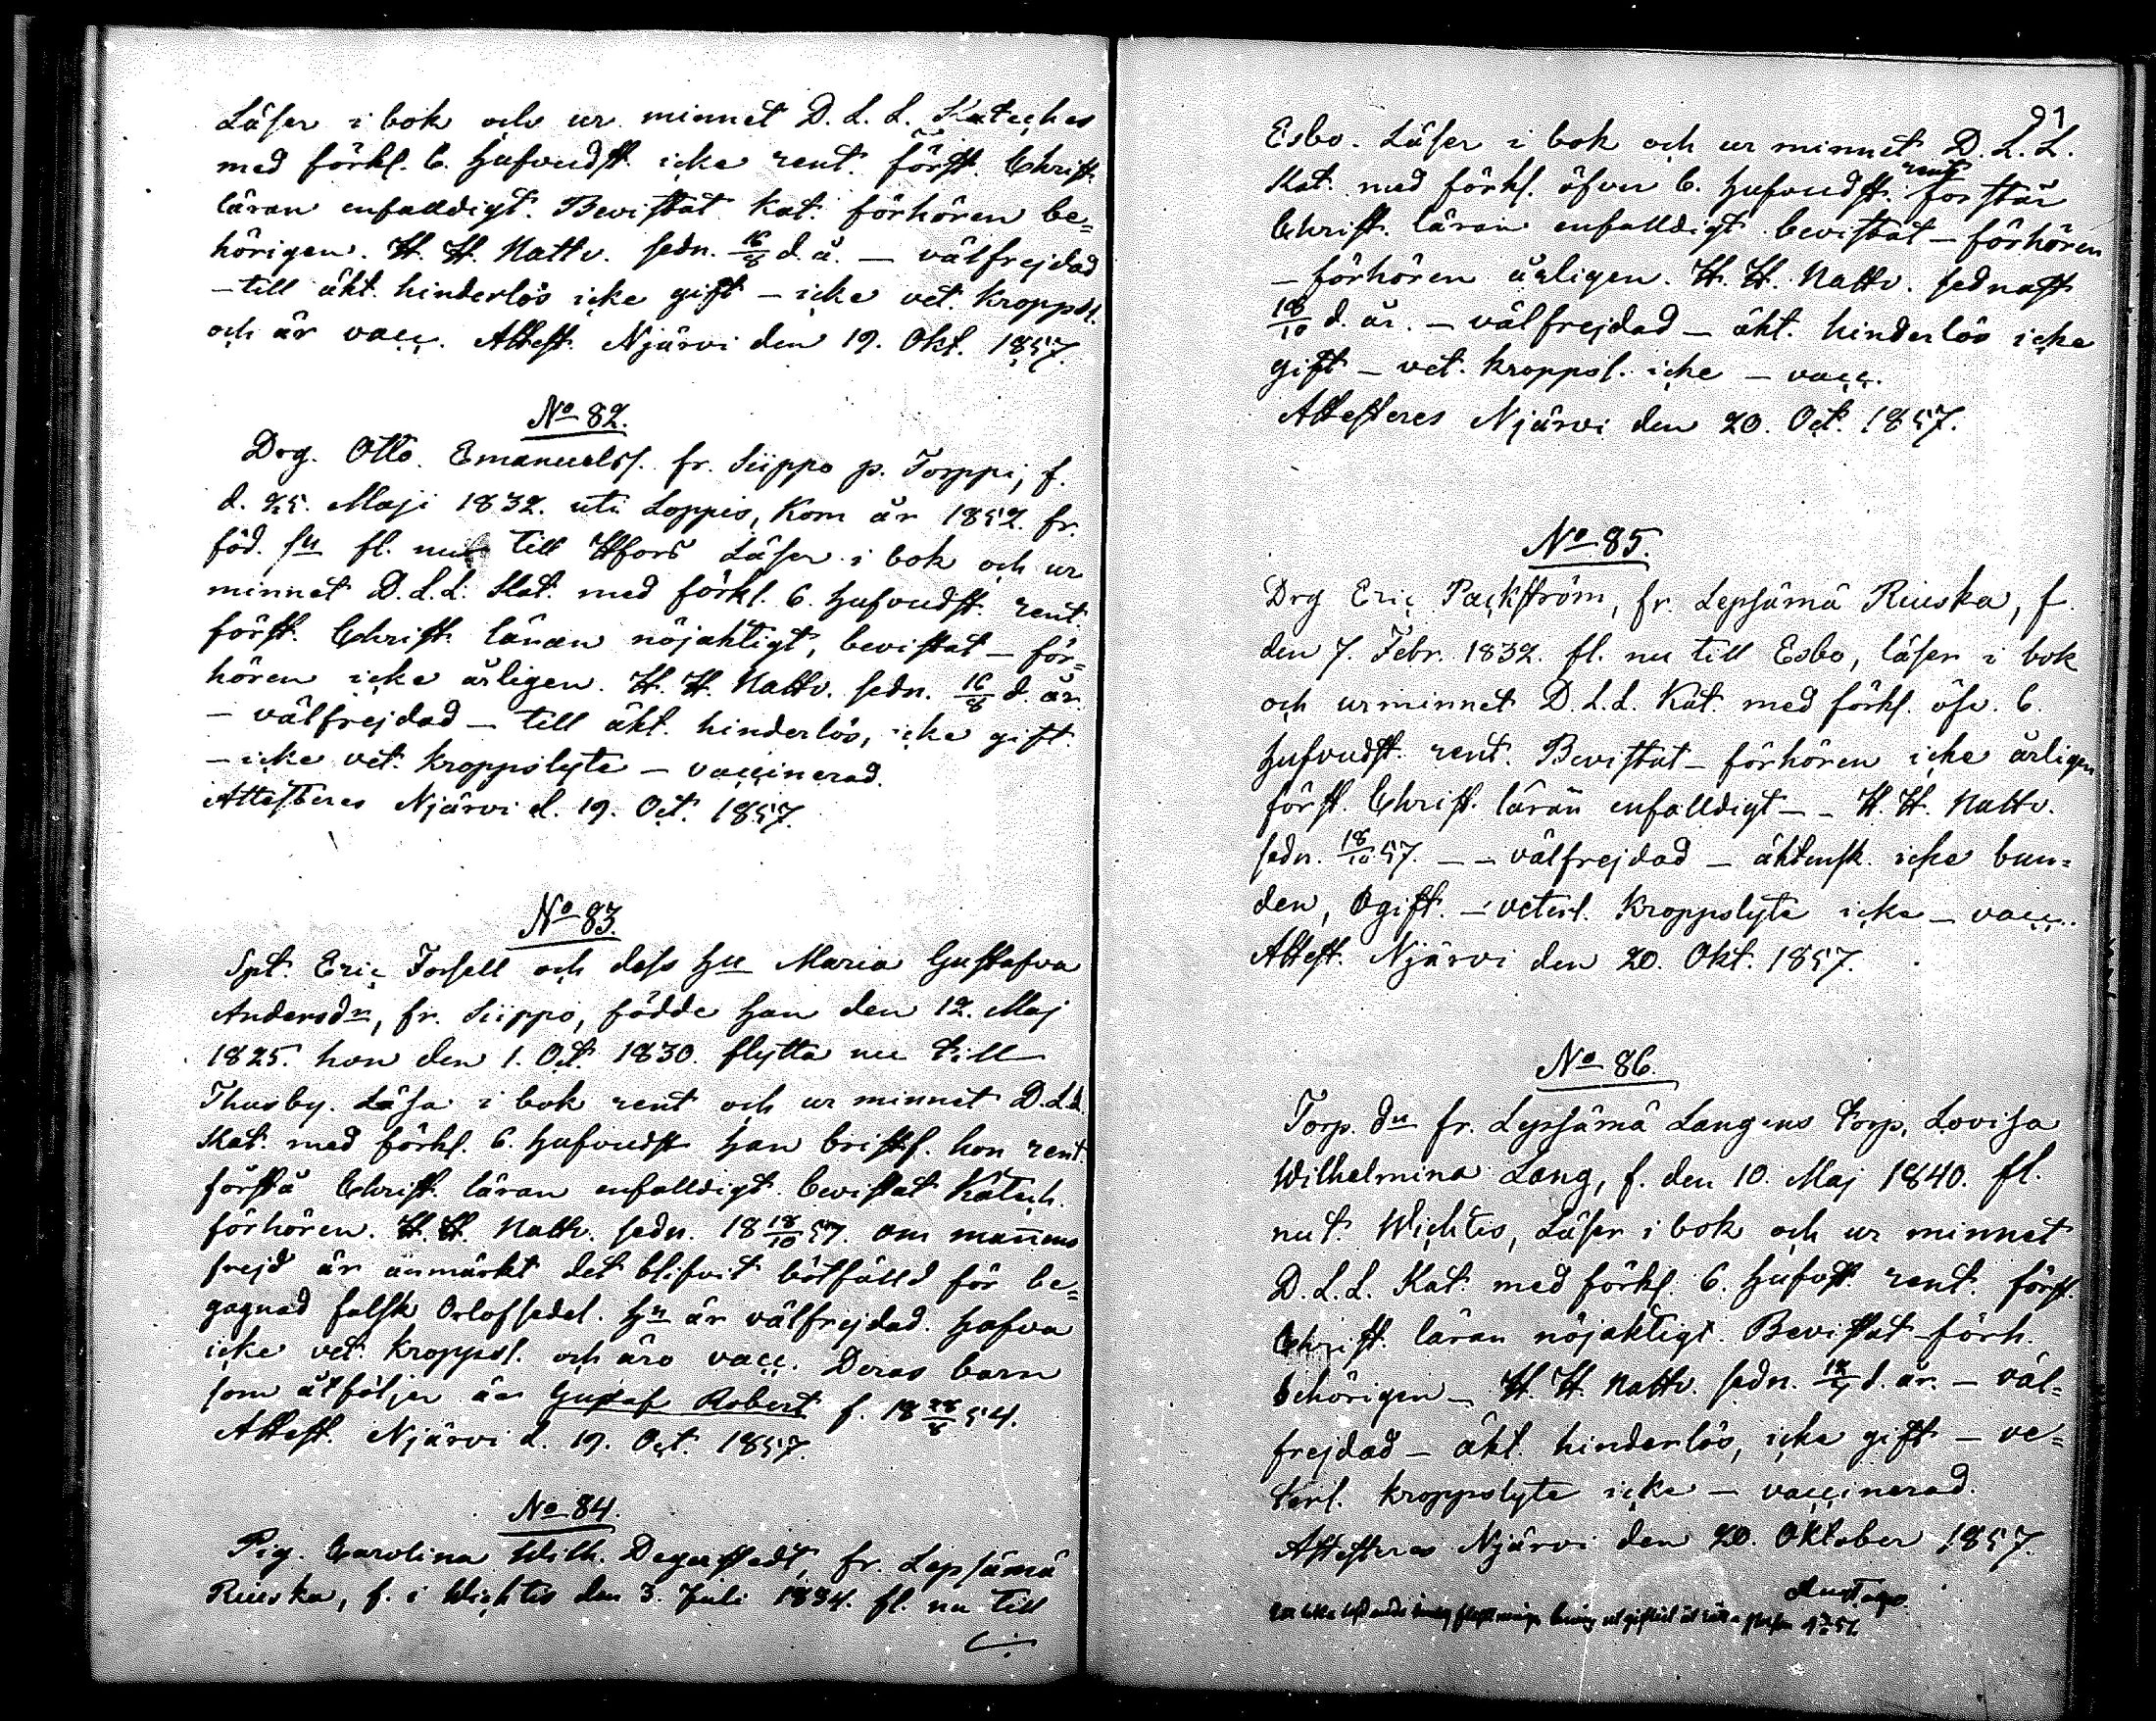 Läser i bok och ur minnet D. L. L. Kateches
med förkl. 6. Hufvudst. icke rent. först. Christ.
läran enfalldigt. Bevistat Kat. förhören be=
hörigen. H. H. Nattv. sedn. 16/8 d. å. — välfrejdad
— till äkt. hinderlös icke gift — icke vet. Kroppsl.
och är vacc. Attest. Njärvi den 19. Okt. 1857.
No 82.
Drg. Otto Emanuelss. fr. Siippo p. Torppi, f.
d. 25. Maji 1832. uti Loppis, Kom år 1852. fr.
föd. sn fl. nu till Hfors Läser i bok och ur
minnet D. L. L. Kat. med förkl. 6. Hufvudst. rent.
först. Christ. läran nöjaktigt, bevistat — för=
hören icke årligen. H. H. Nattv. sedn. 16/8 d. år.
— välfrejdad — till äkt. hinderlös, icke gift.
— icke vet. Kroppslyte — vaccinerad.
Attesteres Njärvi d. 19. Oct. 1857.
No 83.
Spt. Eric Forsell och dess Hu Maria Gustafva
Andersdr, fr. Siippo, födde Han den 12. Maj
1825. hon den 1. Oct. 1830. flytta nu till
Thusby. Läsa i bok rent och ur minnet D. L. L.
Kat. med förkl. 6. Hufvudst Han bristf. hon rent.
förstå Christ. läran enfalldigt. bevistat Katech.
förhören. H. H. Nattv. sedn. 18 18/10 57. om mannens
frejd är anmärkt det blifvit bötfälld för be=
gagnad falsk Orlofssedel. Hu är välfrejdad. Hafva
icke vet. Kroppsl. och äro vacc. Deras barn
som åtföljer är Gustaf Robert f. 18 28/8 54.
Attest. Njärvi d. 19. Oct. 1857.
No 84.
Pig. Carolina Wilh. Degerstedt, fr. Lepsämä
Riuska, f. i Wichtis den 3. Juli 1834. fl. nu till
91
Esbo. Läser i bok och ur minnet D. L. L.
Kat. med förkl. öfver 6. Hufvudst. rent förstår
Christ. läran enfalldigt bevistat — förhören
— förhören årligen. H. H. Nattv. sednast
18/10 d. år. — välfrejdad — äkt. hinderlös icke
gift — vet. kroppsl. icke — vacc.
Attesteres Njärvi den 20. Oct. 1857.
No 85.
Drg Eric Packström, fr. Lepsämä Riuska, f.
den 7. Febr. 1832. fl. nu till Esbo, läser i bok
och ur minnet D. L. L. Kat. med förkl. öfv. 6.
Hufvudst. rent. Bevistat — förhören icke årligen
först. Christ. läran enfalldigt — H. H. Nattv.
sedn. 18/10 57. — välfrejdad — äktensk. icke bun=
den, Ogift. — veterl. Kroppslyte icke — vacc.
Attest. Njärvi den 20. Okt. 1857.
No 86.
Torp. dr fr. Lepsämä Langens torp, Lovisa
Wilhelmina Lang, f. den 10. Maj 1840. fl.
nu t. Wichtis, Läser i bok och ur minnet
D. L. L. Kat. med förkl. 6. Hufvst. rent. först.
Christ. läran nöjaktigt. Bevistat förh.
behörigen — H. H. Nattv. sedn. d. år. — väl=
frejdad — äkt. hinderlös, icke gift — ve=
terl. kroppslyte icke — vaccinerad.
Attesteres Njärvi den 20. Oktober 1857.